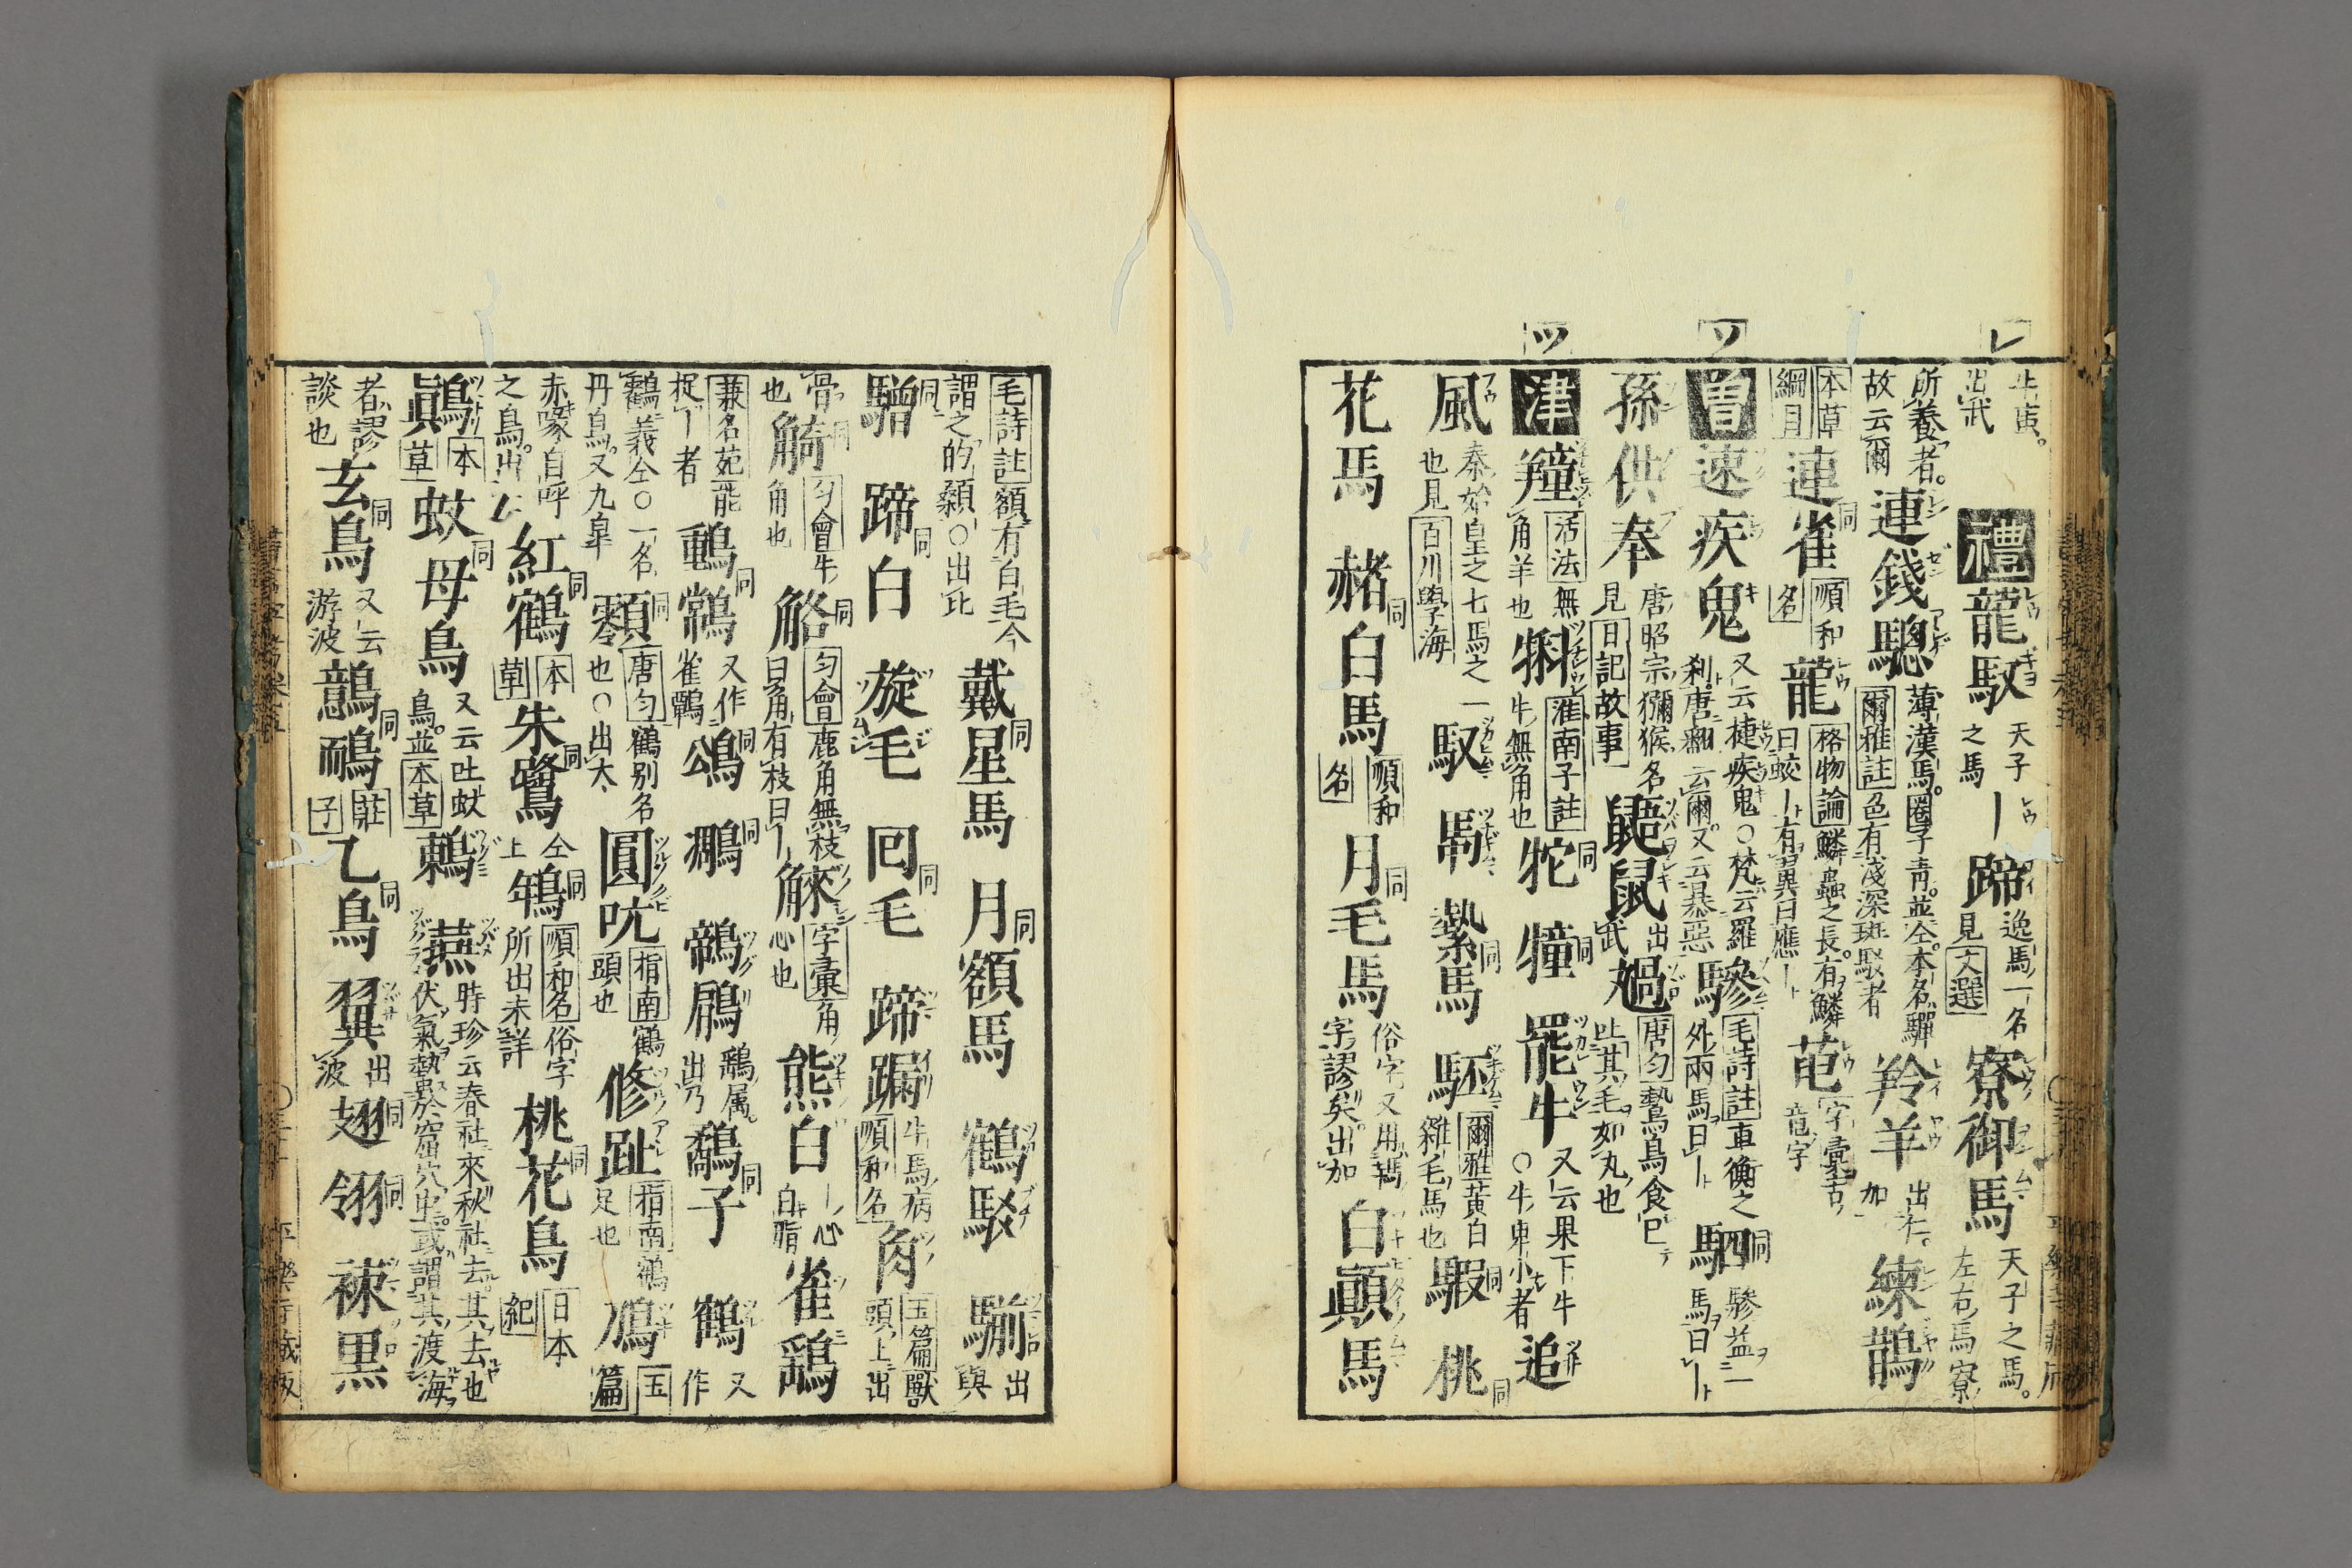 レ
ソ
ツ
出武
禮龍馭 天子之馬 ｜蹄 逸馬一名見文選 寮御馬 天子之馬。左右馬寮
所養者。故云爾 連錢驄 薄漢馬。圈子靑。並仝。本名驒 爾雅註色有淺深斑駁者 羚羊 出仁。加 練鵲
本草綱目 連雀 同 順和名 龍 格物論鱗蟲之長。有鱗曰蛟｜有翼曰應｜ 竜 字彙古竜字
曽速疾鬼 又云捷疾鬼○梵云羅刹。唐翻云爾又云暴惡 驂 毛詩註車衡之外兩馬曰｜ 駟 同 驂益一馬曰｜
孫供奉 唐昭宗獼猴名見日記故事 鼯鼠 出武 唐匀鷙鳥食已吐其毛如丸也
津羵 活法無角羊也 㸯 淮南子註牛無角也 牠 同 犝 同 罷牛 又云果下牛○牛卑小者 追
風 秦始皇之七馬之一也見百川學海 馭 馽 縶馬 同 駓 爾雅黃白雜毛馬也 騢 同 桃
花馬 赭白馬 同 順和名 月毛馬 同 俗字又用鴾字謬矣出加 白顚馬
毛詩註額有白毛今謂之的顙○出比 戴星馬 同 月額馬 同 鶴駁 騚 出與
驓 同 蹄白 同 旋毛 回毛 同 蹄漏 牛馬病順和名 角 玉篇獸頭上出
骨也 觭 同 匀會牛角也 觡 同 匀會鹿角無枝曰角有枝曰｜ 觫 字彙角心也 熊白 ｜心白脂 雀鷂
兼名苑能捉｜者 鶴 又作
鶴義仝○一名丹鳥又九皐 唐匀鶴別名也○出大 圓吭 指南鶴頭也 修趾 指南鶴足也 鳰 玉篇
赤喙自呼之鳥。出公 紅鶴 同 本草 朱鷺 同 仝上 鴾 同 順和名俗字所出未詳 桃花鳥 同 日本紀
鷏 本草 蚊母鳥 同 又云吐蚊鳥。並本草 鶇 燕 時珍云春社來秋社去其去也伏氣蟄於窟穴中或謂其渡海
者謬談也 玄鳥 同 又云游波 鷾鴯 同 莊子 乙鳥 同 翼 出波 翅 同 翎 同 𧛞黑